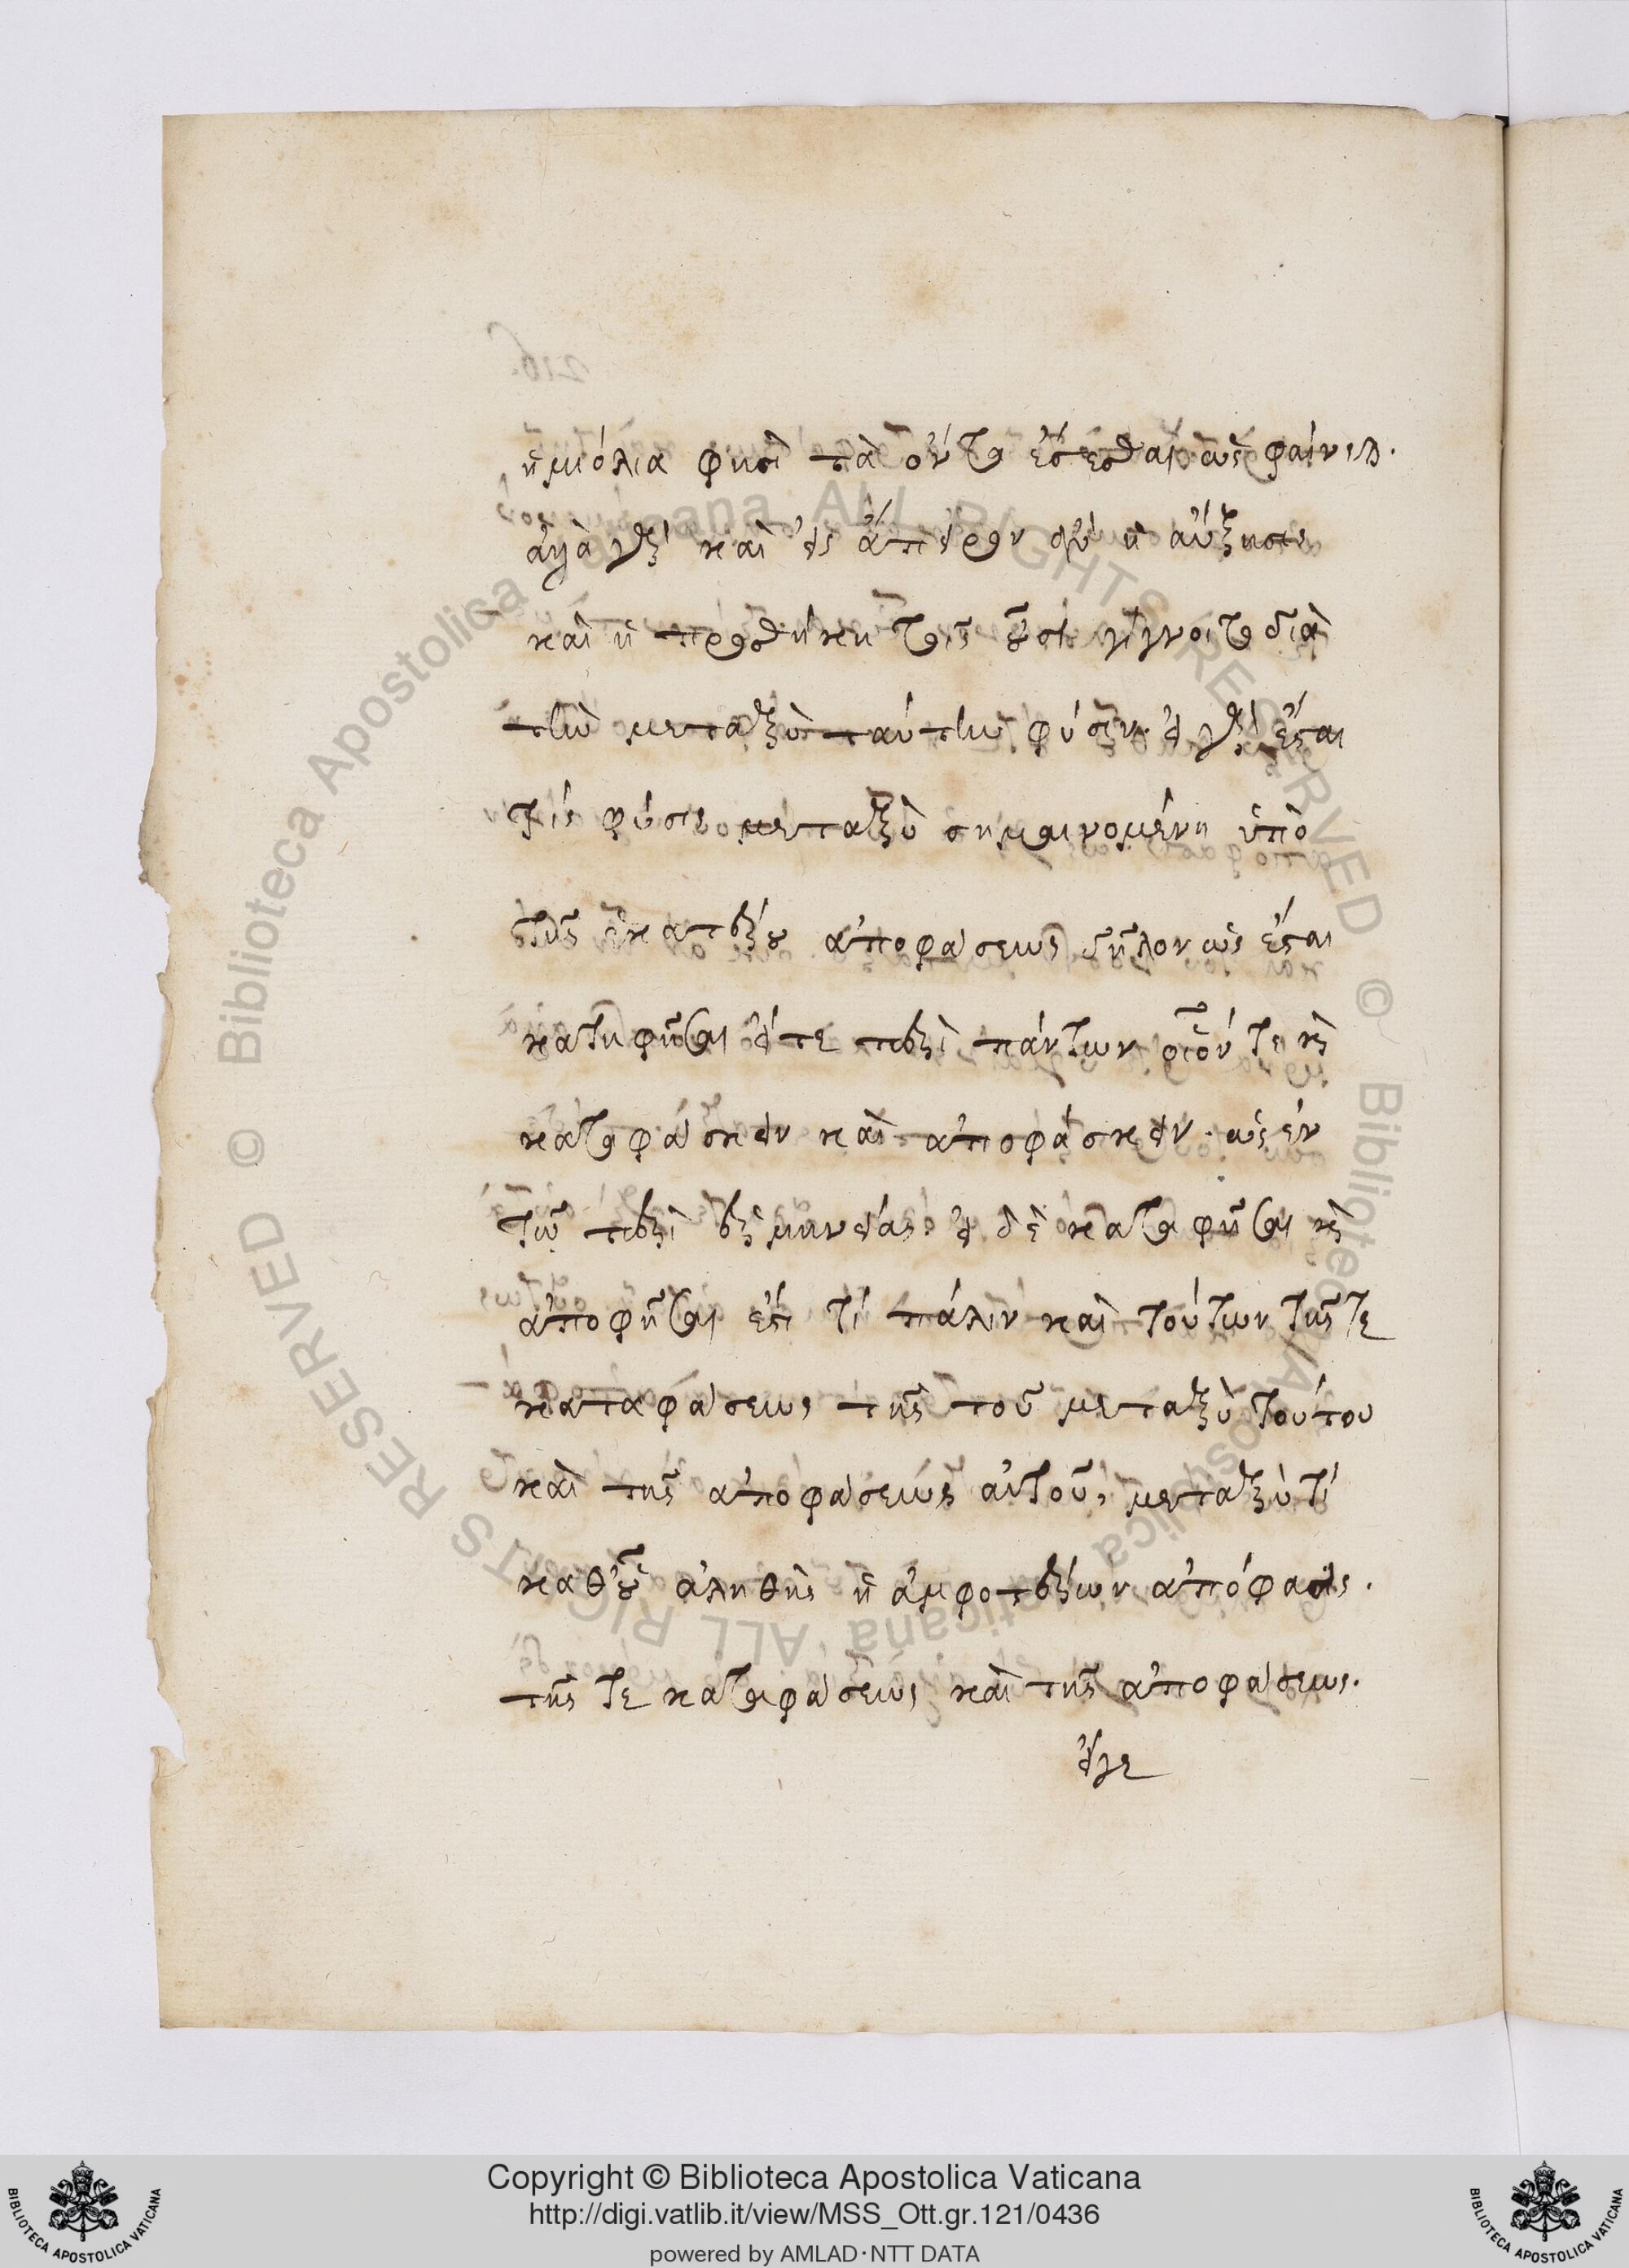 ἡμιόλια φησὶ τὰ ὄντα ἔσεσθαι ὡς φαίνεται.
ἀλλὰ γὰρ καὶ εἰς ἄπειρον οὖν ἡ αὔξησις
καὶ ἡ προσθήκη τοῖς οὖσι γίγνοιτο διὰ
τὴν μεταξὺ ταύτην φύσιν. εἰ γὰρ ἔσται
τίς φύσις μεταξὺ σημαινομένη ὑπὸ
τῆς ἑκατέρου ἀποφάσεως δῆλον ὡς ἔσται
καταφῆσαι εἴτε περὶ πάντων οἷόν τε καὶ
καταφάσκειν καὶ ἀποφάσκειν. ὡς ἐν
τῷ περὶ ἑρμηνείας. εἰ δὲ καταφῆσαι καὶ
ἀποφῆσαι ἔστι τί πάλιν καὶ τούτων τῆς τε
καταφάσεως τῆς τοῦ μεταξὺ τούτου
καὶ τῆς ἀποφάσεως αὐτοῦ, μεταξύ τί
καθ' οὗ ἀληθὴς ἡ ἀμφοτέρων ἀπόφασις.
τῆς τε καταφάσεως καὶ τῆς ἀποφάσεως.
εἴγε
216.
Copyright © Biblioteca Apostolica Vaticana
http://digi.vatlib.it/view/MSS_Ott.gr.121/0436
powered by AMLAD·NTT DATA
BIBLIOTECA APOSTOLICA VATICANA
BIBLIOTECA APOSTOLICA VATICANA
© Biblioteca Apostolica Vaticana ALL RIGHTS RESERVED © Biblioteca Apostolica Vaticana ALL RIGHTS RESERVED